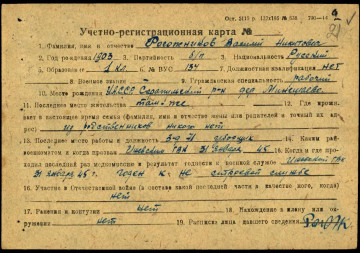 Учетно-регистрационная карта №
1. Фамилия, имя и отчество Рогожников Василий Никитович
2. Год рождения 1903 3. Партийность б/п 4. Национальность Русский
5. Образование 1 кл. 6. № ВУС 134 7. Должностная квалификация нет
8. Военное звание - 9. Гражданская специальность рабочий
10. Место рождения УАССР р-н дер
11. Последнее место жительства там же 12. Где прожи-
вает в настоящее время семья (фамилия, имя и отчество жены или родителей и точный их ад-
рес) из родственников никого нет
13. Последнее место работы и должность 14. Каким рай-
военкоматом и когда призван РВК 31 января 45 15. Когда и где про-
ходил последний раз медкомиссию и результат годности к военной службе
31 января 45 г. годен к не строевой службе
16. Участие в Отечественной войне (в составе какой последней части, в качестве кого, когда)
нет
17. Ранения и контузии нет 18. Нахождение в плену или ок-
ружении нет 19. Роспись лица вашего сведения